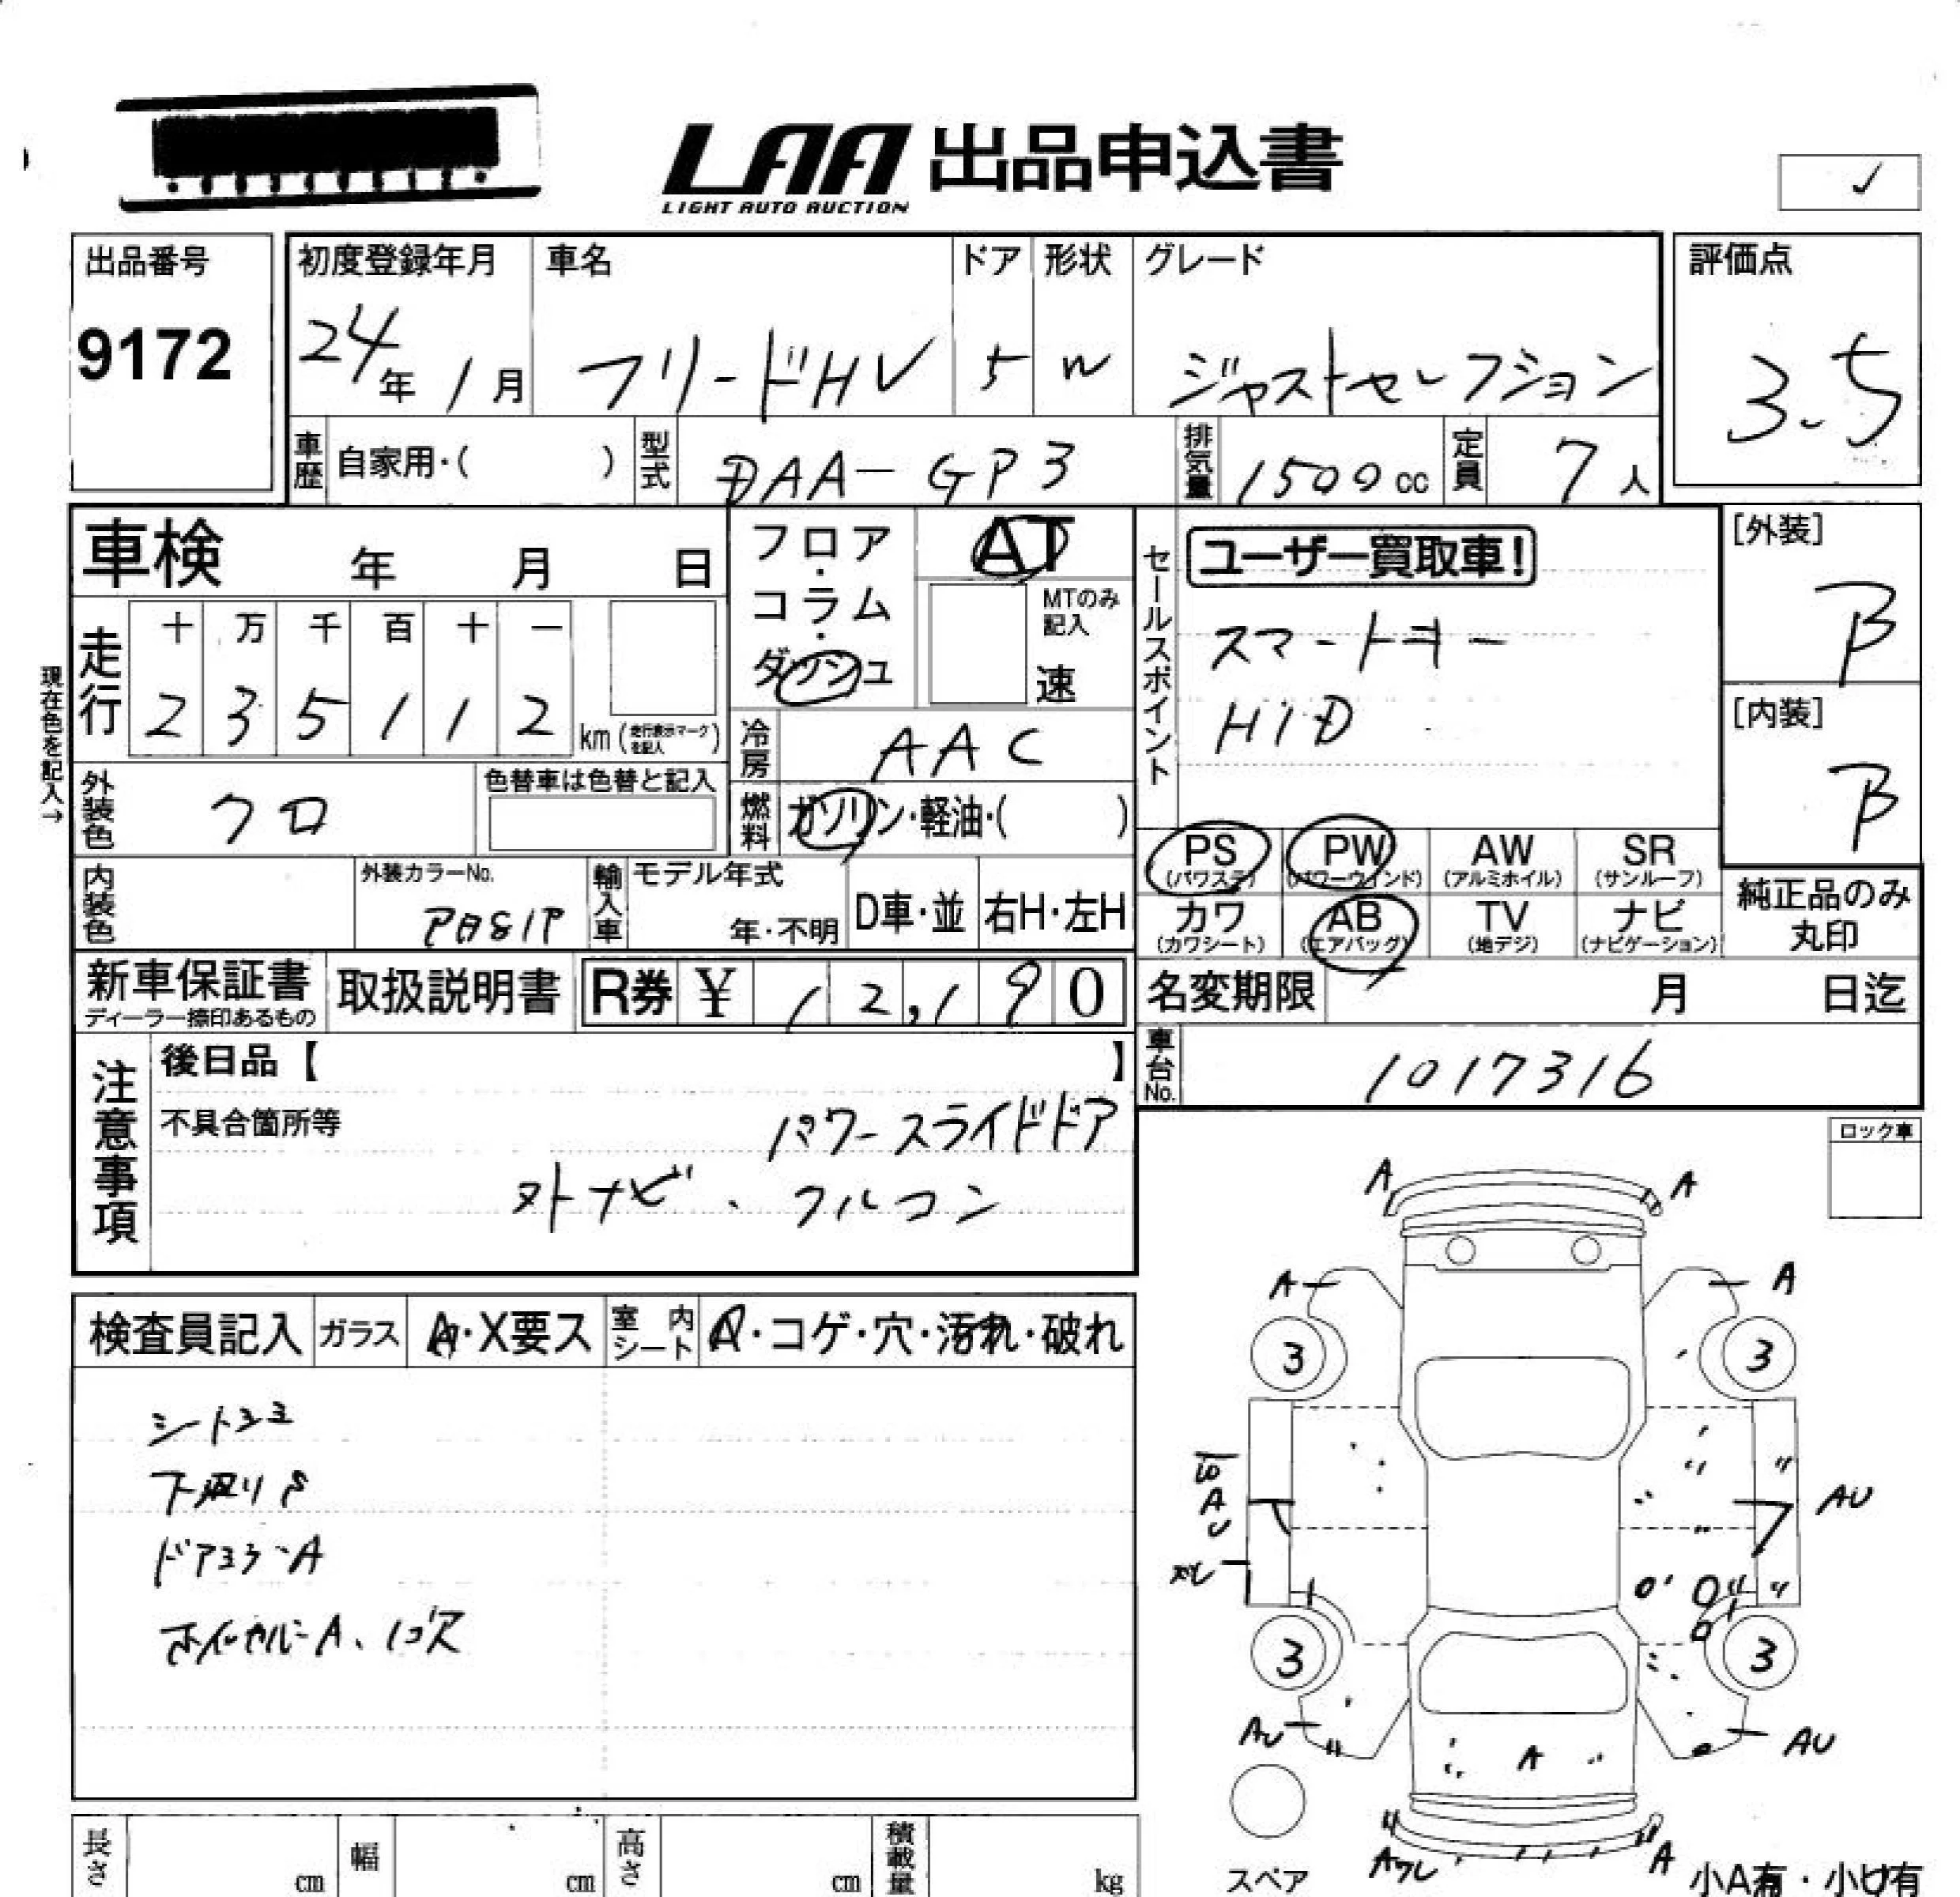 LAA 出品申込書
LIGHT AUTO AUCTION
✓
出品番号
9172
初度登録年月
24年 1月
車名
フリードHV
ドア
5
形状
W
グレード
ジャストセレクション
評価点
3.5
車歴 自家用・( )
型式 DAA-GP3
排気量 1500 cc
定員 7人
車検 年 月 日
フロア・コラム・ダッシュ
AT
MTのみ記入
速
セールスポイント
ユーザー買取車!
スマートキー
HID
[外装]
B
[内装]
B
現在色を記入→
走行
十 万 千 百 十 一
2 3 5 1 1 2 km (走行表示マークを記入)
冷房 AAC
外装色 クロ
色替車は色替と記入
燃料 ガソリン・軽油・( )
PS (パワステ) PW (パワーウインド) AW (アルミホイル) SR (サンルーフ)
カワ (カワシート) AB (エアバッグ) TV (地デジ) ナビ (ナビゲーション)
純正品のみ丸印
内装色
外装カラーNo.
輸入車
モデル年式
年・不明
D車・並
右H・左H
新車保証書
ディーラー捺印あるもの
取扱説明書
R券 ¥ 12,190
名変期限 月 日迄
車台No. 1017316
注意事項
後日品【 】
不具合箇所等
パワースライドドア
外ナビ、フルコン
ロック車
検査員記入 ガラス A・X要ス 室内シート A・コゲ・穴・汚れ・破れ
シートヨミ
下廻りS
A A
A A
3 3
A
U
AU
3 3
AU AU
A
A
スペア
小A有・小U有
長さ cm 幅 cm 高さ cm 積載量 kg